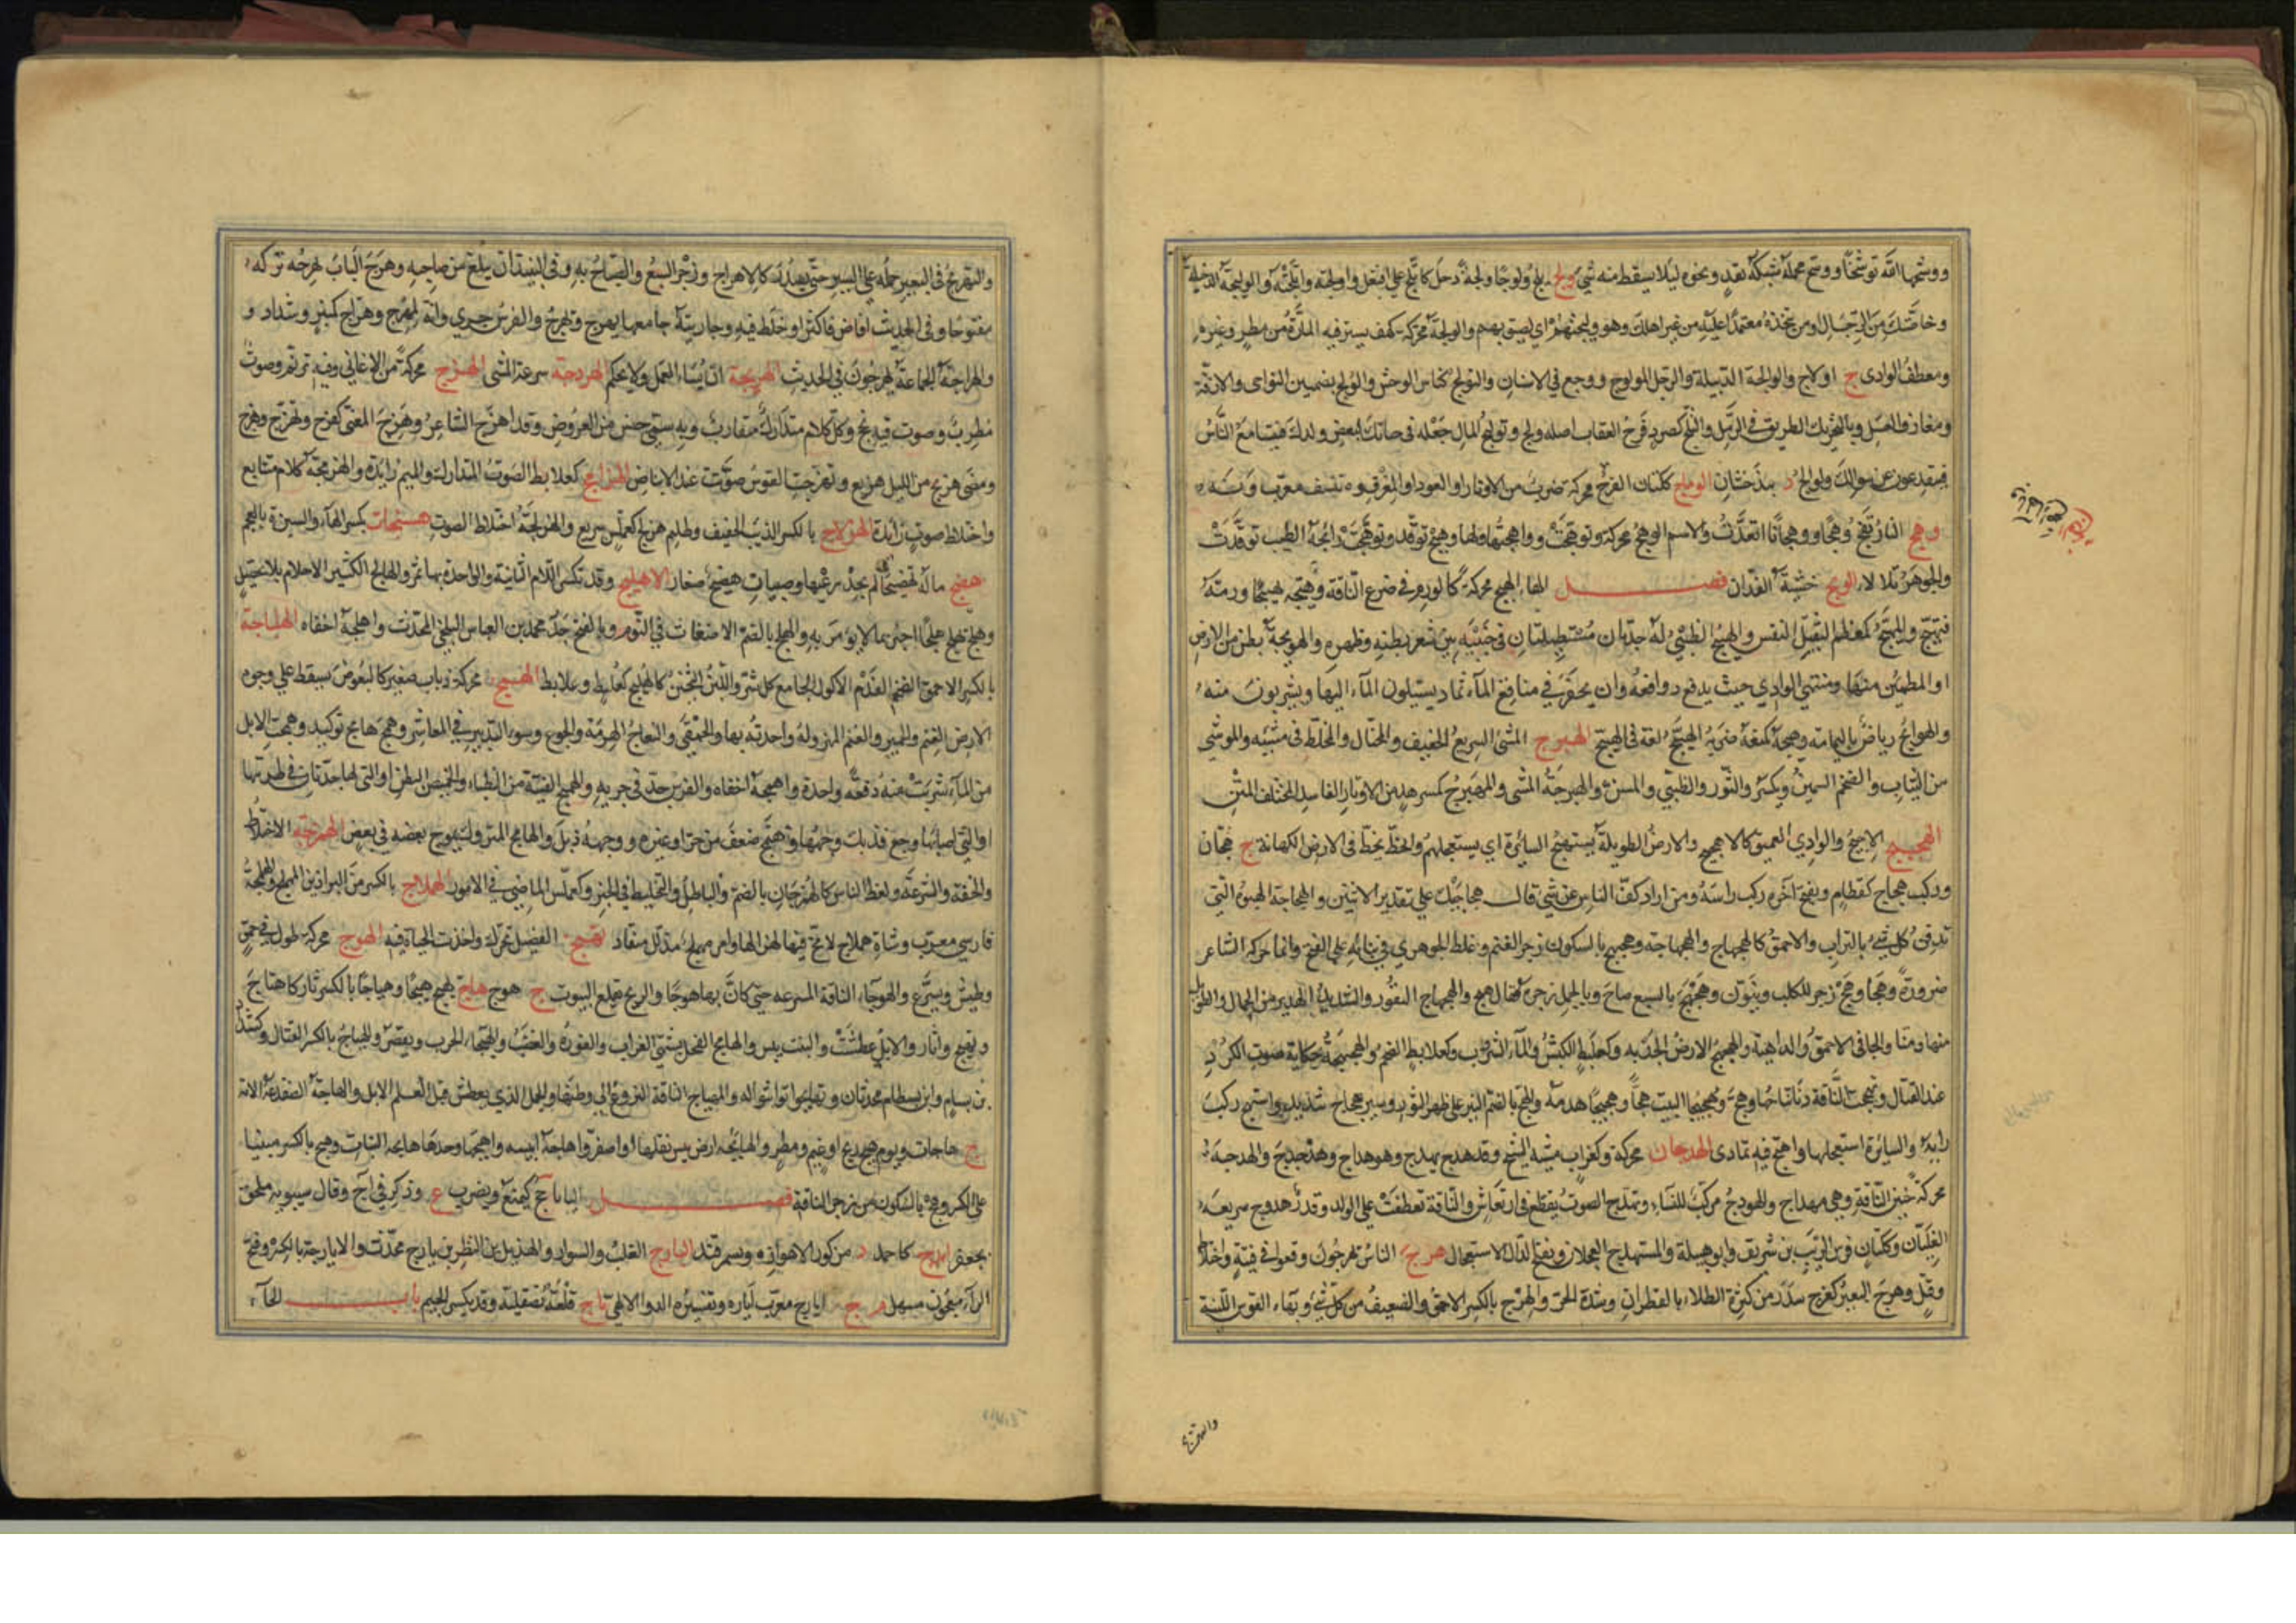 ووشجها الله توشيجا ووشج محمله شبكه بقد ونحوه ليلا يسقط منه شئ ولج يلج ولوجا ولجة دخل كاتلج على افتعل واولجته واتلجته والوليجة الدخيلة
وخاصتك من الرجال او من تتخذه معتمدا عليه من غير اهلك وهو وليجتهم اي لصيق بهم والولجة محركة كهف يستتر فيه المارة من مطر وغيره
ومعطف الوادي ج اولاج والوالجة الدبيلة والرجل المولوج ووجع في الانسان والتولج كناس الوحش والولج بضمتين النواحي والازقة
ومغارف العسل وبالتحريك الطريق في الرمل والتلج كصرد فرخ العقاب اصله ولج وتوليج المال جعله في حياتك لبعض ولدك فيتسامع الناس
فينقدعون عن سؤالك وولوالج د ببذخشان الومّاج ككتان الفرج محركة ضرب من الاوتار او العود او المغرفة تشبه معرب ونه
وهج النار تهج وهجا ووهجانا اتقدت والاسم الوهج محركة وتوهجت وواهجتها ولها وهيج توقد وتوهجت رائحة الطيب توقدت
والجوهر تلألأ الويج خشبة الفدان فصل الهاء الهبج محركة كالورم في ضرع الناقة وهبجه تهبيجا ورمه
فتهبج والمهبج كمعظم الثقيل النفس والهبيج الظبي له جدتان مستطيلتان في جنبيه بين شعر بطنه وظهره والهوبجة بطن من الارض
او المطمئن منها ومنتهى الوادي حيث يدفع دوافعه وان يحفر في مناقع الماء ثماد يسيلون الماء اليها ويشربون منه
والهوابج رياض باليمامة وهبجه كمنعه ضربه الهبيّج لغة في الهبيّخ الهبرج المشي السريع الخفيف والمختال والمخلط في مشيه والموشى
من الثياب والضخم السمين ويكسر والثور والظبي والمسن والهبرجة المشي والمهبرج كمسرهد من الاوتار الفاسد المختلف المتن
الهجيج الاجيج والوادي العميق كالاهجيج والارض الطويلة يستهج السائرة اي يستعجلهم والخط يخط في الارض للكهانة ج هجان
وركب هجاج كقطام ويفتح آخره ركب راسه ومن اراد كف الناس عن شئ قال هجاجيك على تقدير الاثنين والهجاجة الهبوة التي
تدفن كل شئ بالتراب والاحمق كالهجهاج والهجهاجة وهجهج بالسكون زجر الغنم وغلط الجوهري في بنائه على الفتح وانما حركه الشاعر
ضرورة وهجا وهج زجر للكلب وينون وهجهج بالسبع صاح وبالجمل زجره فقال هيج والهجهاج النفور والشديد الهدير من الجمال والطويل
منها ومنا والجافي الاحمق والداهية والهجهج الارض الجدبة وكعلبط الكبش والماء الشروب وكعلابط الضخم والهجهجة حكاية صوت الكرد
عند القتال وتهجهجت الناقة دنا نتاجها وهج وهجيجا البيت هجا وهجيجا هدمه والهج بالضم النير على ظهر الثور وسير هجاج شديد واستهج ركب
رايه والسائرة استعجلها واهتج فيه تمادى الهدجان محركة وكغراب مشية الشيخ وقد هدج يهدج وهو هداج وهدجدج والهدجة
محركة حنين الناقة وهي مهداج والهودج مركب للنساء وتهدج الصوت تقطع في ارتعاش والناقة تعطفت على الولد وقدر هدوج سريعة
الغليان وككتان فرس الريب بن شريق وابو قبيلة والمستهدج العجلان وبفتح الدال الاستعجال هرج الناس يهرجون وقعوا في فتنة واختلاط
وقتل وهرج البعير كفرح سدر من كثرة الطلاء بالقطران وشدة الحر والهرج بالكسر الاحمق والضعيف من كل شئ وبهاء القوس اللينة
والتهريج
والتهريج في البعير حمله على السير حتى يسدر كالاهراج وزجر السبع والصياح به وفي النبيذ ان يبلغ من صاحبه وهرج الباب يهرجه تركه
مفتوحا وفي الحديث افاض فاكثر او خلط فيه وجاريته جامعها يهرج وتهرج والفرس جرى وانه لمهرج وهراج كمنبر وشداد و
والهراجة الجماعة يهرجون في الحديث الهربجة ان يساء العمل ولا يحكم الهردجة سرعة المشي الهزج محركة من الاغاني وفيه ترنم وصوت
مطرب وصوت فيه بح وكل كلام متدارك متقارب وبه سمي جنس من العروض وقد اهزج الشاعر وهزج المغني كفرح وتهزج وهزج
ومضى هزيج من الليل هزيع وتهزجت القوس صوتت عند الانباض الهزامج كعلابط الصوت المتدارك والميم زائدة والهزمجة كلام متتابع
واختلاط صوت زائدة الهزلاج بالكسر الذيب الخفيف وظليم هزلج كعملس سريع والهزلجة اختلاط الصوت هسنجان بكسر الهاء والسين ة بالعجم
هضج ماله تهضيجا لم يجد رعيها وصبيان هضيج صغار الاهليلج وقد تكسر اللام الثانية والواحدة بهاء ثمر والهالج الكثير الاحلام بلا تحصيل
وهلج يهلج هلجا اخبر بما لا يؤمن به والهلج بالضم الاضغاث في النوم وبالفتح جد محمد بن العباس البلخي المحدث واهلجه اخفاه الهلباجة
بالكسر الاحمق الضخم الفدم الاكول الجامع كل شر واللبن الخاثن كالهلبج كعلبط وعلابط الهمج محركة ذباب صغير كالبعوض يسقط على وجوه
الارض الغنم والحمير والغنم المهزولة واحدته بهاء والحمقى والنعاج الهرمة والجوع وسوء التدبير في المعاش وهمج هامج توكيد وهمجت الابل
من الماء شربت منه دفعة واحدة واهمجه اخفاه والفرس جد في جريه والهميج الفتية من الظباء والخميص البطن او التي لها جدتان في طرتها
او التي اصابها وجع فذبلت وجهها واهتمج ضعف من حر او غيره ووجهه ذبل والهامج المتروك يموج بعضه في بعض الهمرجة الاختلاط
والخفة والسرعة ولغط الناس كالهمرجان بالضم والباطل والتخليط في الخبر وكعملس الماضي في الامور الهملاج بالكسر من البراذين المهملج والهملجة
فارسي معرب وشاة هملاج لا مخ فيها لهزالها وامر مهملج مذلل منقاد تهنج الفصيل تحرك واخذت الحياة فيه الهوج محركة طول في حمق
وطيش وتسرع والهوجاء الناقة المسرعة حتى كان بها هوجا والريح تقلع البيوت ج هوج هاج يهيج هيجا وهياجا بالكسر ثار كاهتاج
وتهيج واثار والابل عطشت والنبت يبس والهائج الفحل يشتهي الضراب والفورة والغضب والهيجاء الحرب ويقصر والهياج بالكسر القتال وكشداد
بن بسام وابن بسطام محدثان وتهايجوا تواثبوا له والمهياج الناقة النزوع الى وطنها والجمل الذي يعطش قبل الابل والهاجة الضفدعة الانثى
ج هاجات ويوم هيج ريح او غيم ومطر والهائجة ارض يبس بقلها او اصفر واهاجه ايبسه واهيجها وجدها هايجة النبات وهيج بالكسر مبنيا
على الكسر وهج بالسكون من زجر الناقة فصل الياء يأجج كيمنع ويضرب ع وذكر في أجج وقال سيبويه ملحق
بجعفر ايدج كاحمد د من كور الاهواز وة بسمرقند اليارج القلب والسوار والهذيل بن النضر بن يارج محدث والايارجة بالكسر وفتح
الراء معجون مسهل م ج ايارج معرب اياره وتفسيره الدواء الالهي ياج قلعة بصقلية وقد يكسر الجيم باب الحاء